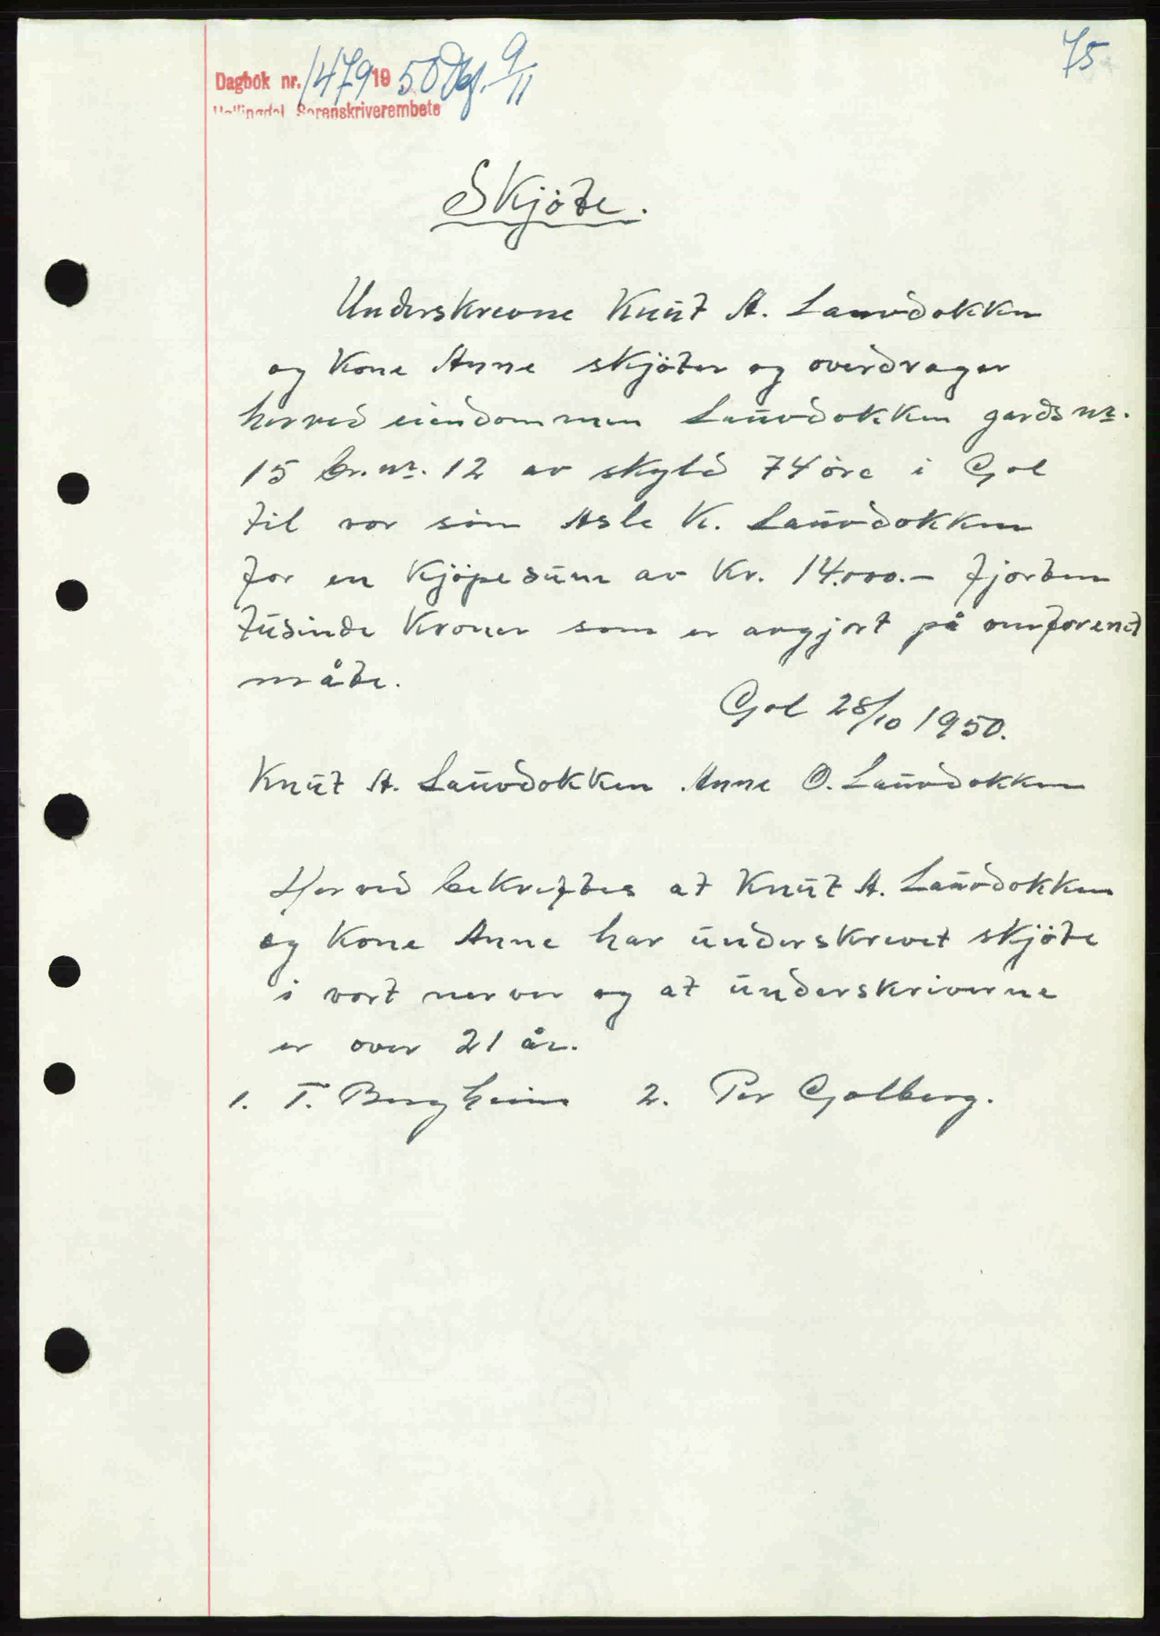 75
Dagbok nr. 1479 1950 Dbf. 9/11
Hallingdal Sorenskriverembete
Skjöte.
Underskrevne Knut A. Lauvdokken
og Kone Anne skjöter og overdrager
herved eiendommen Lauvdokken gards nr.
15 br. nr. 12 av skyld 74 öre i Gol
til vor sön Asle K. Lauvdokken
for en Kjöpesum av Kr. 14.000.- fjorten
tusinde Kroner som er avgjort på omforenet
måte.
Gol 28/10 1950.
Knut A. Lauvdokken Anne O. Lauvdokken
Herved bekreftes at Knut A. Lauvdokken
og Kone Anne har underskrevet skjöte
i vort nerver og at underskriverne
er over 21 år.
1. T. Bergheim 2. Per Golberg.